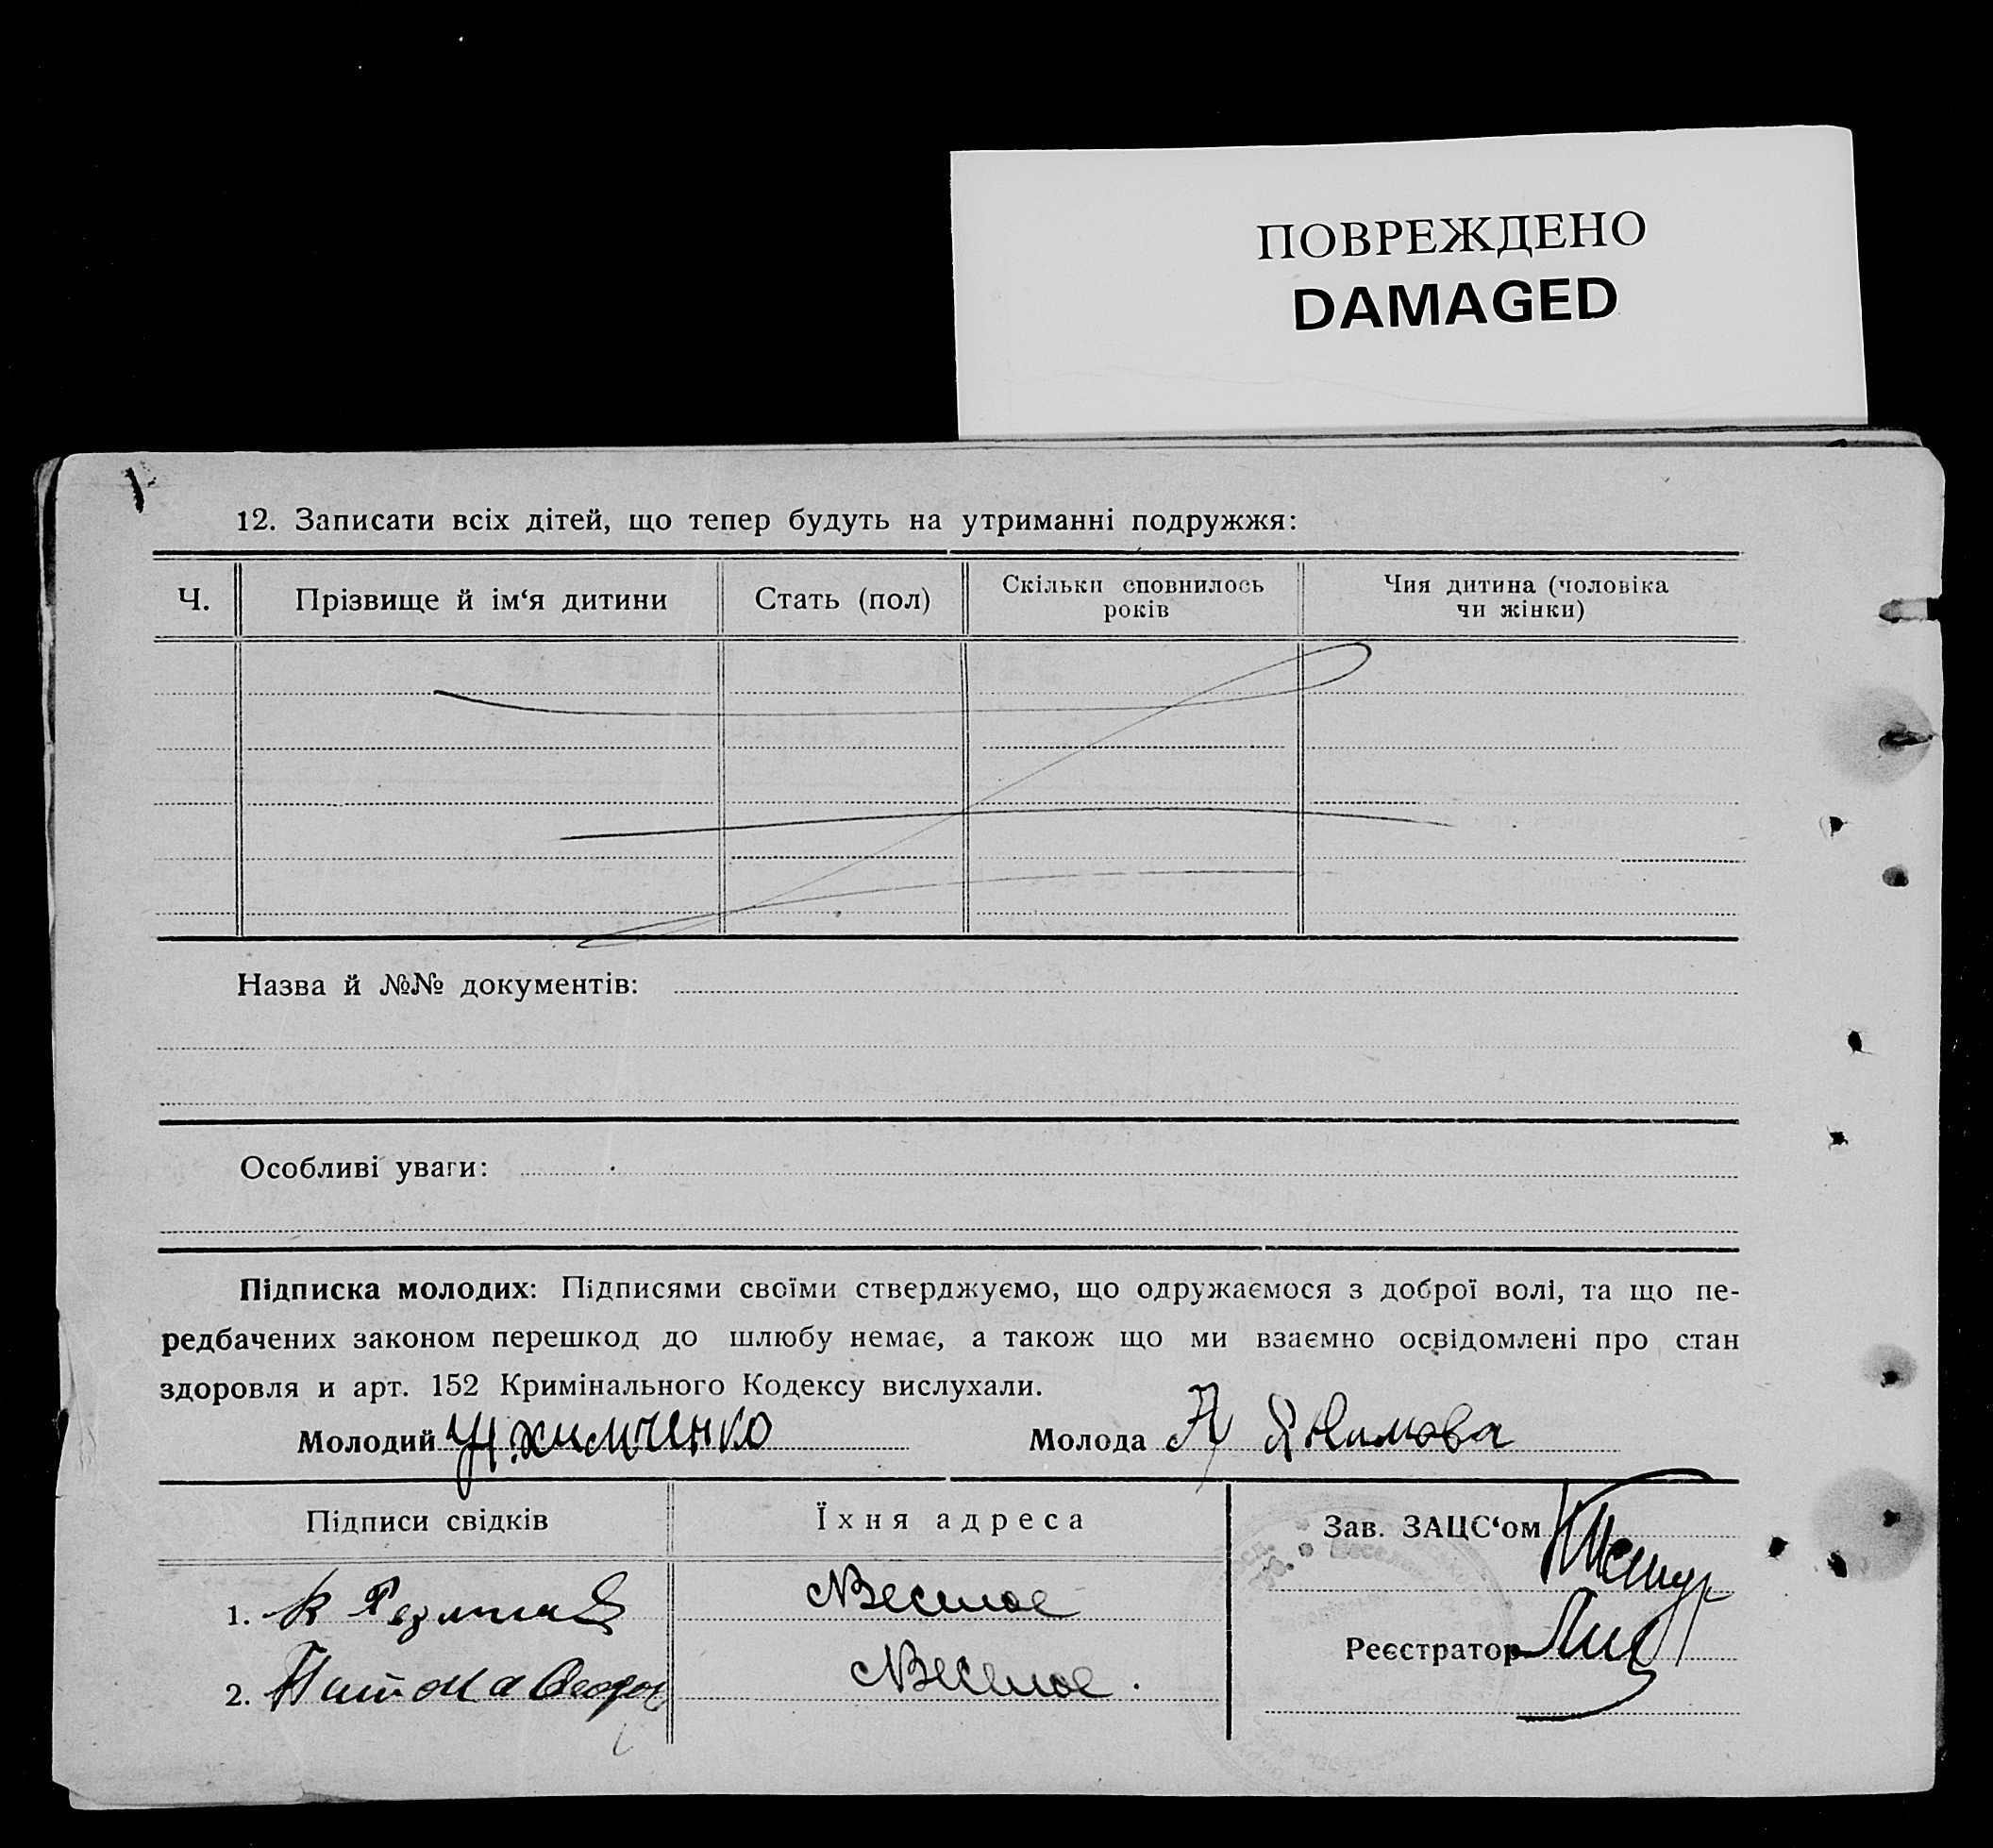 ПОВРЕЖДЕНО
DAMAGED
12. Записати всіх дітей, що тепер будуть на утриманні подружжя:
Ч.
Прізвище й ім‘я дитини
Стать (пол)
Скільки сповнилось
років
Чия дитина (чоловіка
чи жінки)
Назва й №№ документів:
Особливі уваги:
Підписка молодих: Підписями своїми стверджуємо, що одружаємося з доброї волі, та що пе-
редбачених законом перешкод до шлюбу немає, а також що ми взаємно освідомлені про стан
здоровля и арт. 152 Кримінального Кодексу вислухали.
Молодий
Молода
Підписи свідків
Їхня адреса
Зав. ЗАЦС‘ом
1.
Реєстратор
2.